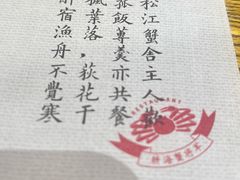 松江蟹舍主人歡
菰飯蓴羹亦共餐
楓葉落，荻花干
醉宿漁舟不覺寒
RESTAURANT